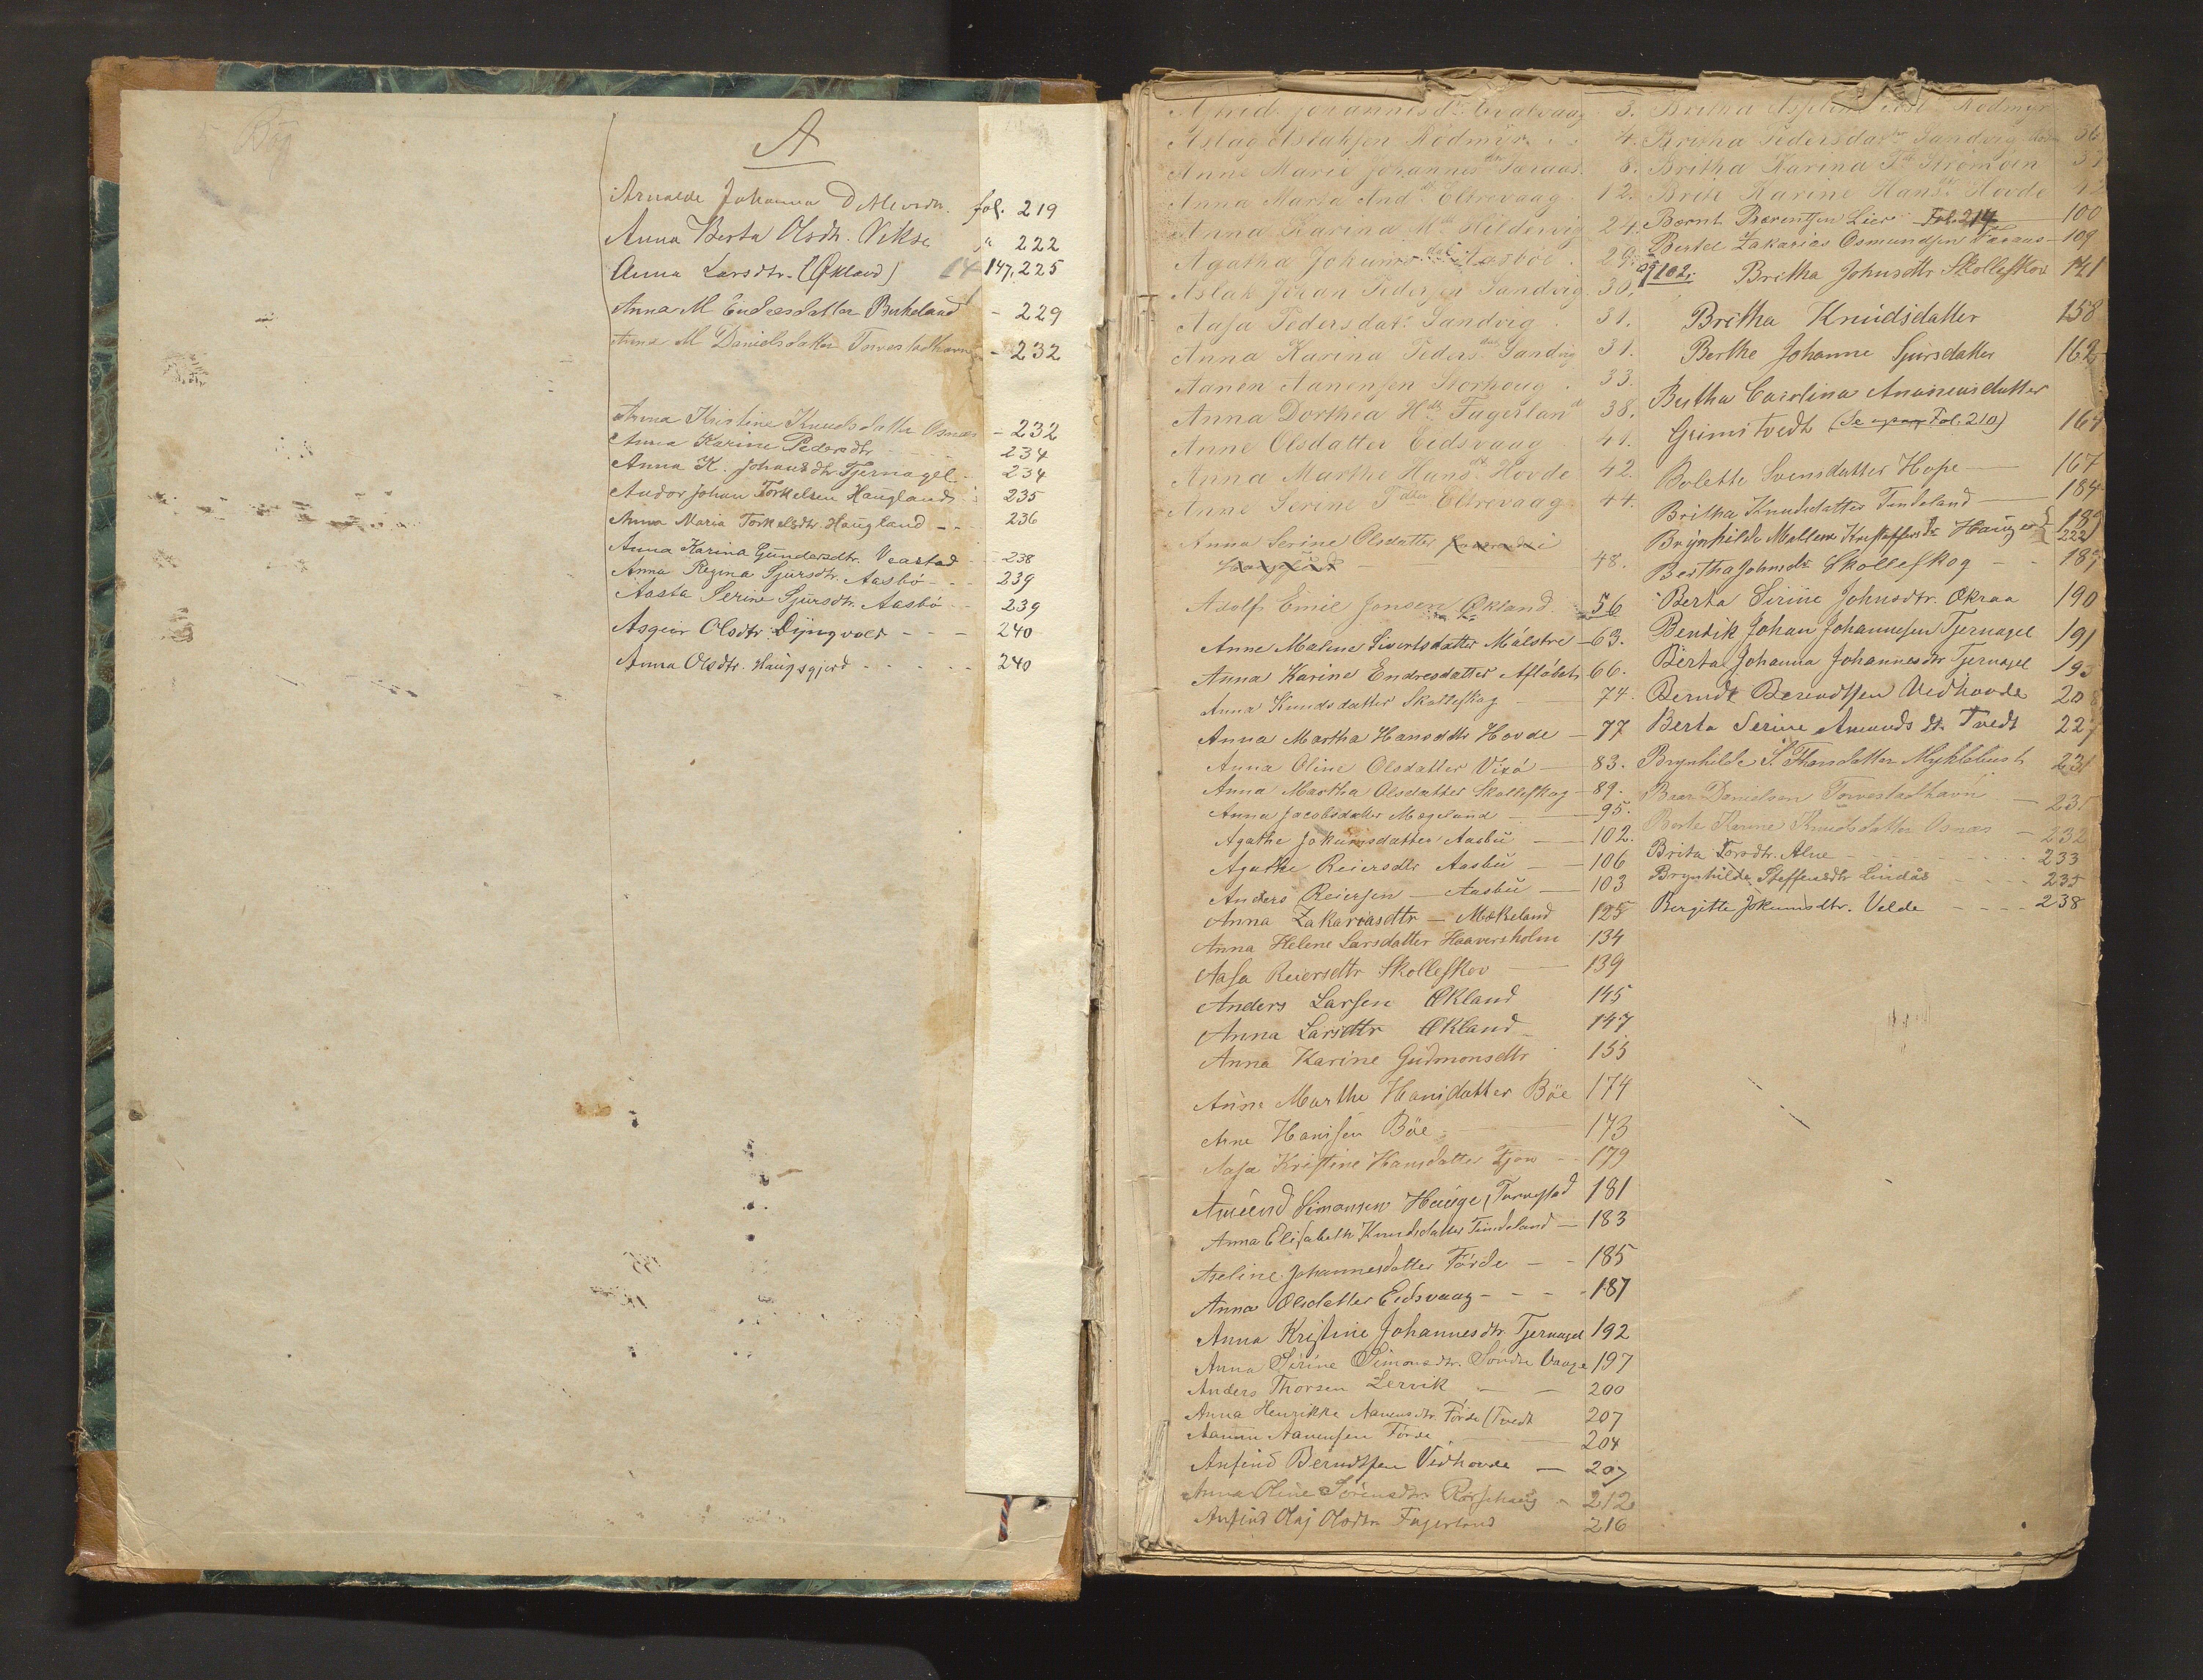 A
Arnolde Johanna Detlevsdr. fol. 219
Anna Berta Olsdtr. Vikse " 222
Anna Larsdtr. (Økland) 147, 225
Anna M Endresdatter Birkeland - 229
Anna M Danielsdatter Torvestadhavn - 232
Anna Kristine Knudsdatter Osnæs - 232
Anna Karine Pedersdtr 234
Anna K. Johansdtr Tjernagel 234
Andor Johan Torkelsen Haugland 235
Anna Maria Torkelsdtr. Haugland - - 236
Anna Karina Gundersdtr. Veastad - 238
Anna Regina Sjursdtr. Aasbö - - - 239
Aasta Serine Sjursdtr. Aasbö - - 239
Asgeir Olsdtr. Dÿngvold - - - 240
Anna Olsdtr. Haugsgjerd - - - - - 240
3.
Aslag Aslaksen Rödmyr 4.
Anne Marie Johannesdtr Taraas 8.
Anna Marta And.dtr Eltrevaag 12.
Anna Karina Hildervig 24.
Agatha Aasböe 29.
Aslak Johan Pedersen Sandvig 30.
Aasa Pedersdatr Sandvig 31.
Anna Karina Peders.datr Sandvig 31.
Aanen Aanensen Storhoug 33.
Anna Dorthea H.dtr Fagerland 38.
Anne Olsdatter Eidsvaag 41.
Anna Marthe Hans.dtr Hovde 42.
Anne Serine Eltrevaag 44.
Anna Serine Olsdatter
48.
Adolf Emil Jonsen Økland 56
Anne Malene Sivertsdatter Målstre - 63.
Anna Karine Endresdatter 66.
Anna Knudsdatter Skollefskog - 74.
Anna Martha Hansdtr Hovde - 77
Anna Oline Olsdatter Vixö - 83.
Anna Martha Olsdatter Skollefskog - 89.
Anna Jacobsdatter Mægeland 95.
Agathe Jokumsdatter Aasbü - 102.
Agathe Reiersdtr Aasbü - 106
Anders Reiersen - Aasbü - 103
Anna Zakariasdtr - Mækeland 125
Anna Helene Larsdatter Haaversholm 134
Aasa Reiersdtr Skollefskov 139
Anders Larsen Økland 145
Anna Larsdtr Økland 147
Anna Karine Gudmonsdtr 155
Anna Marthe Hansdatter Böe 174
Arne Hansen Böe 173
Aasa Kristine Hansdatter 179
Amund Simonsen Hauge, 181
Anna Elisabeth Knudsdatter Tindeland - 183
Aseline Johannesdatter Förde - - 185
Anna Olsdatter Eidsvaag - - - - 187
Anna Kristine Johannesdtr. Tjernagel 192
Anna Serine Simonsdtr. Söndre Vaage 197
Anders Thorsen Lervik - - 200
Anna Henrikke Aanensdtr. Förde (Tvedt 207
Aanen Aanensen Förde 204
Anfind Berndtsen Vedhovde - 207
Anna Oline Sörensdtr. 212
Anfind Olaj Olsdtn Fagerland 216
Rödmyr
Britha Pedersdatr Sandvig 36
Britha Karina Strömöen
Brite Karine Hans.dtr Hovde 42
Bernt Berentsen Lier Fol. 214 - 100
Bertel Zakarias Osmundsen Taraas - 109
og 102. Britha Johnsdtr Skollefskov 141
Britha Knudsdatter 158
Berthe Johanne Sjursdatter 162
Bertha Carolina Ananiasdatter
Grimstvedt (Se ogsaa Fol. 210) 164
Bolette Svensdatter Hope - 167
Britha Knudsdatter Tindeland - 184
Brynhilde Mallene Kristoffersdtr Hauge 189 222
Bertha Johnsdtr Skollefskog - - 189
Berta Serine Johnsdtr. Økraa 190
Bendik Johan Johannesen Tjernagel 191
Berta Johanna Johannesdtr Tjernagel 193
Berndt Berendtsen Vedhovde 208
Berta Serine Amundsdtr. Tvedt 227
Brynhilde S. Thorsdatter Myklebust 231
Baar Danielsen Torvestadhavn - 231
Berte Karine Knudsdatter Osnæs - 232
Brita Torsdtr. Alne 233
Brynhilde Steffensdtr Lindås 235
Bergitte Jokumsdtr. Velde 238